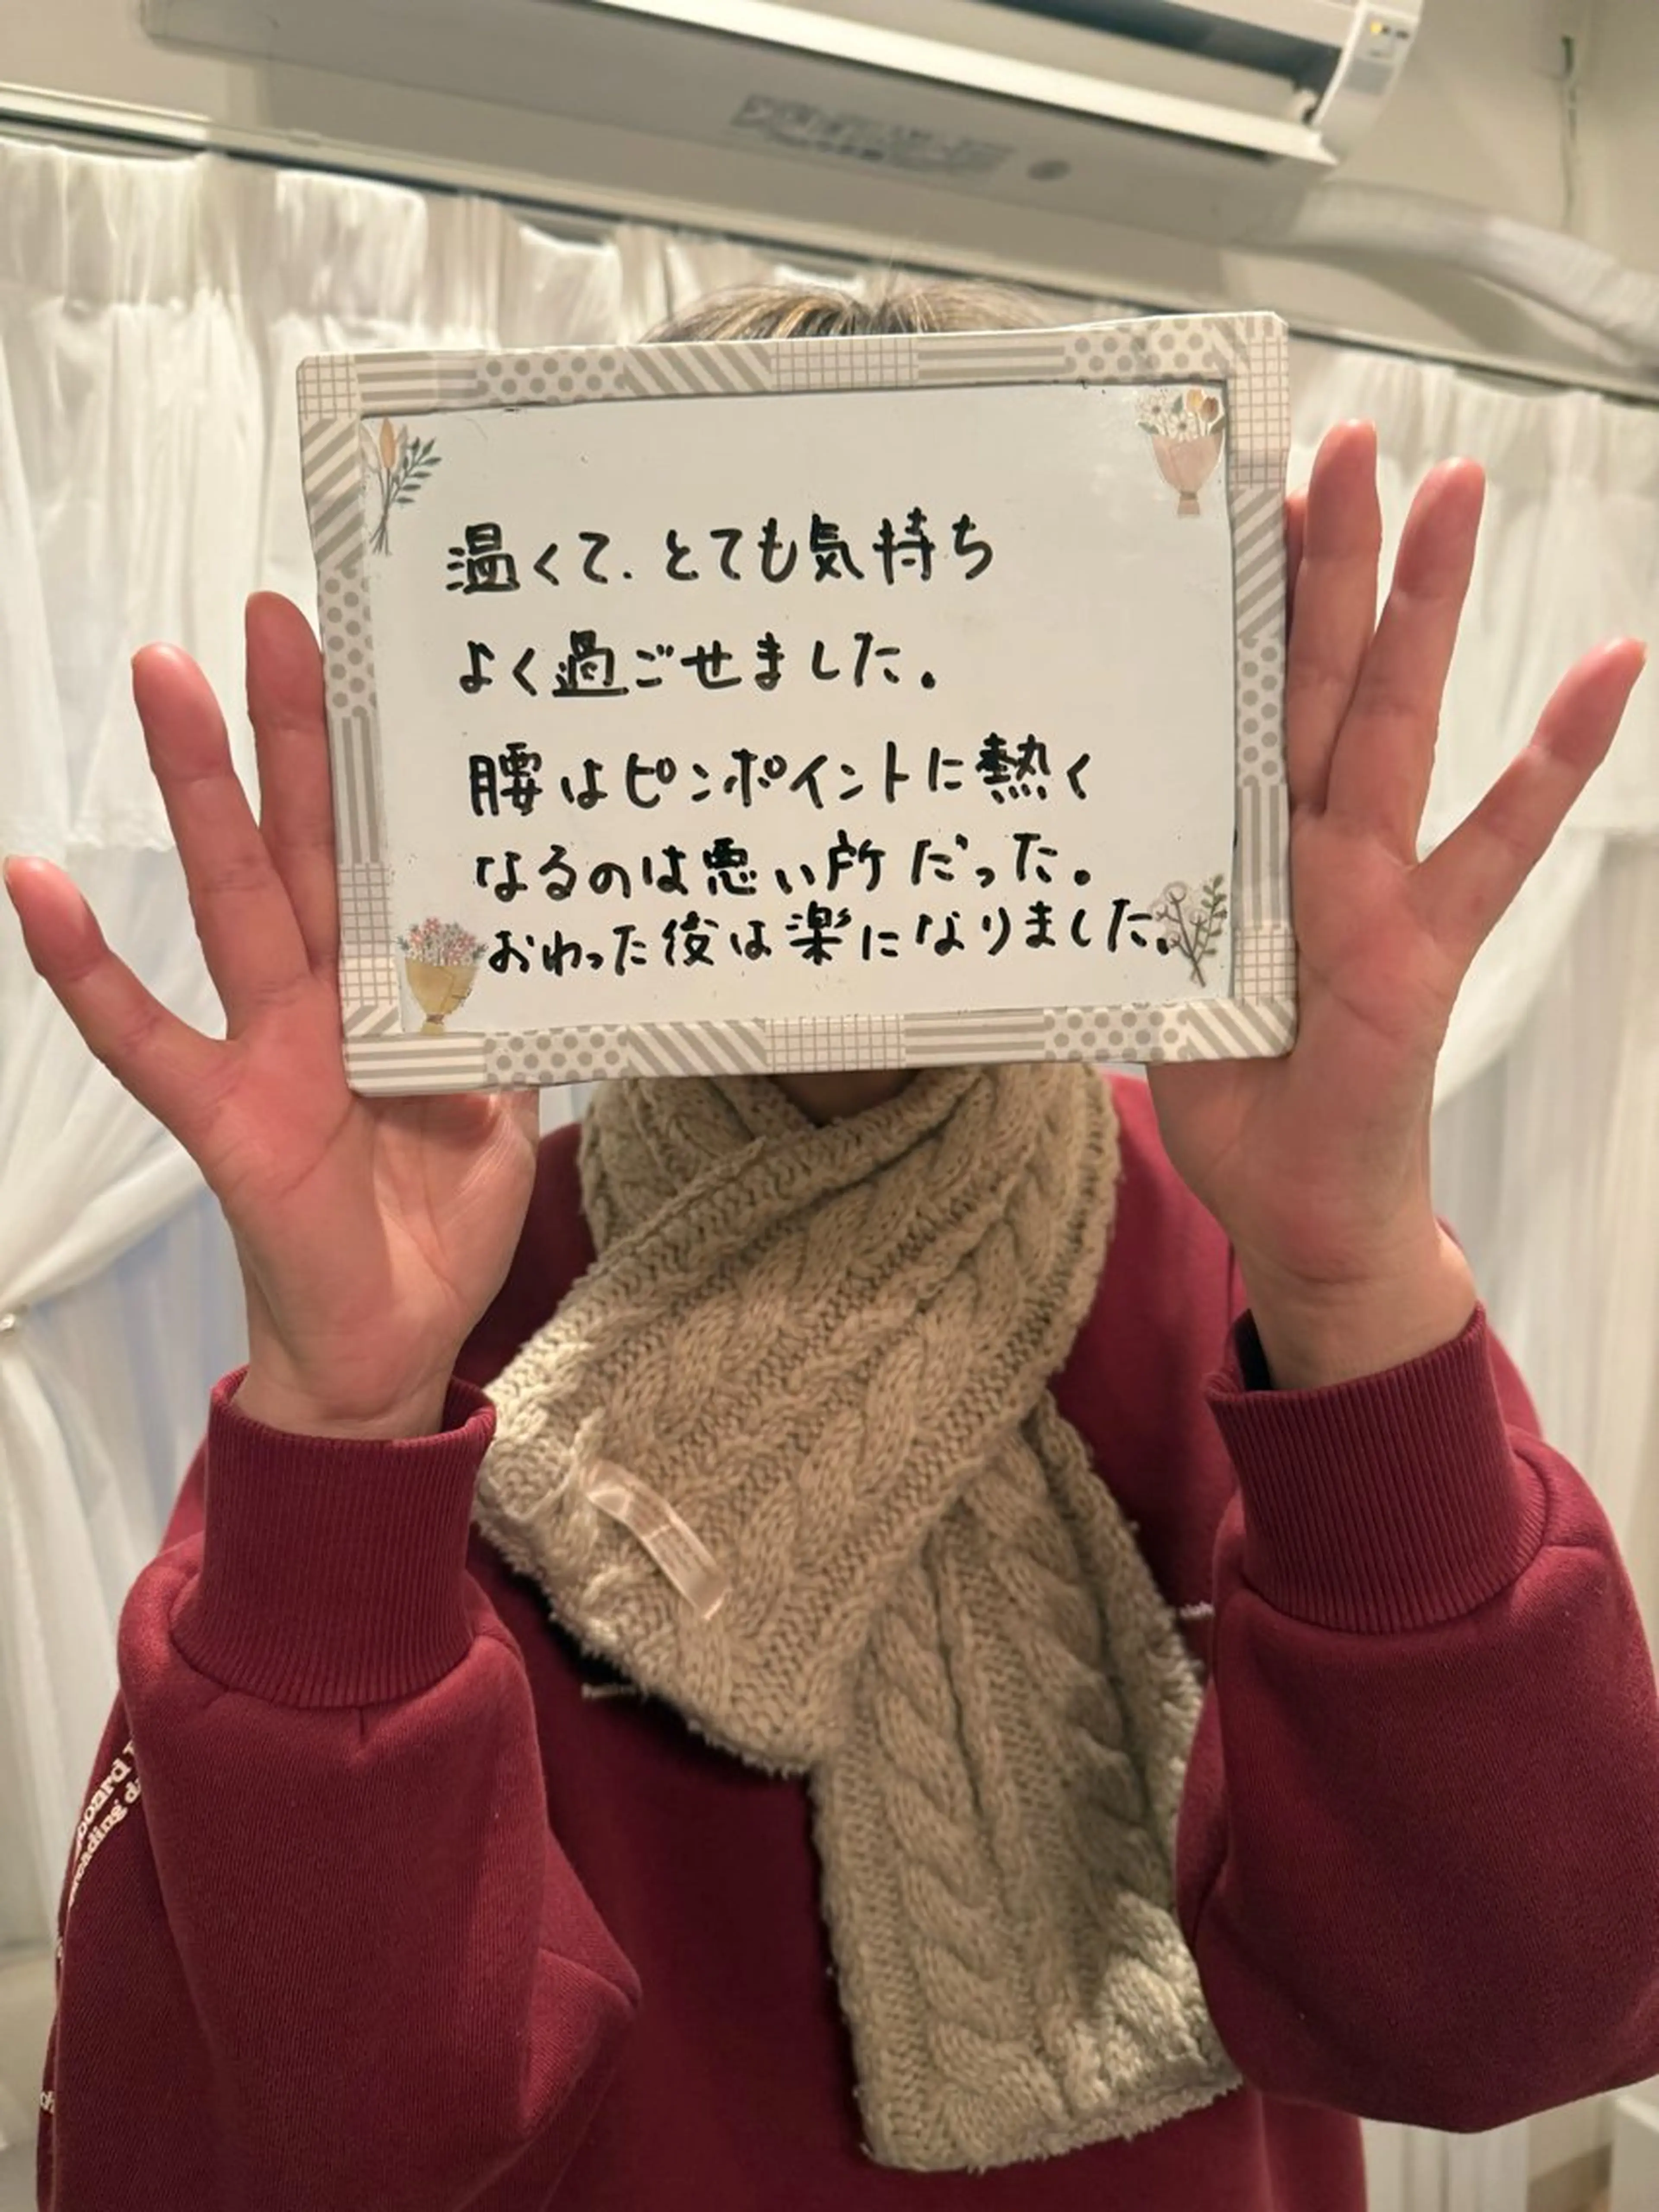 温くて、とても気持ち
よく過ごせました。
腰はピンポイントに熱く
なるのは悪い所だった。
おわった後は楽になりました。